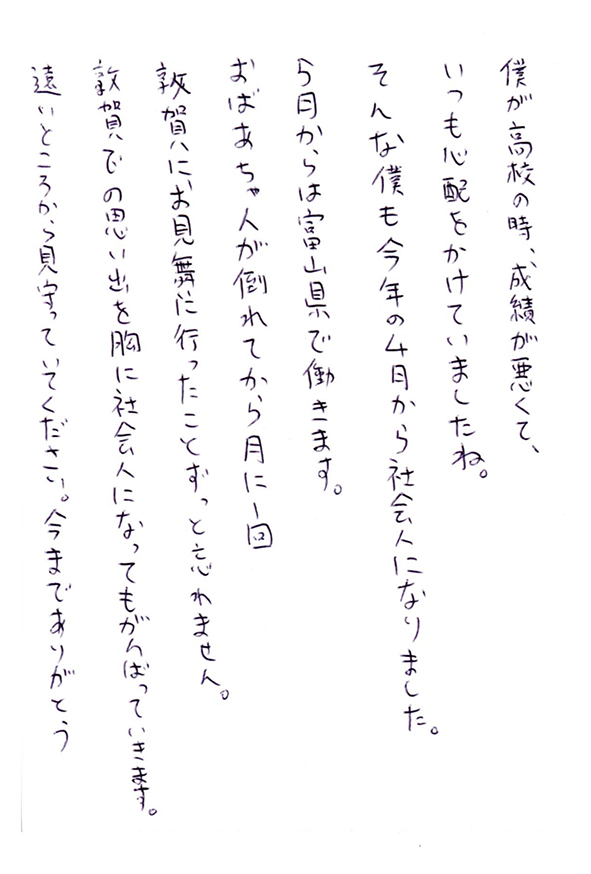 僕が高校の時、成績が悪くて、
いつも心配をかけていましたね。
そんな僕も今年の4月から社会人になりました。
5月からは富山県で働きます。
おばあちゃんが倒れてから月に1回
敦賀にお見舞に行ったことずっと忘れません。
敦賀での思い出を胸に社会人になってもがんばっていきます。
遠いところから見守っていてください。今までありがとう